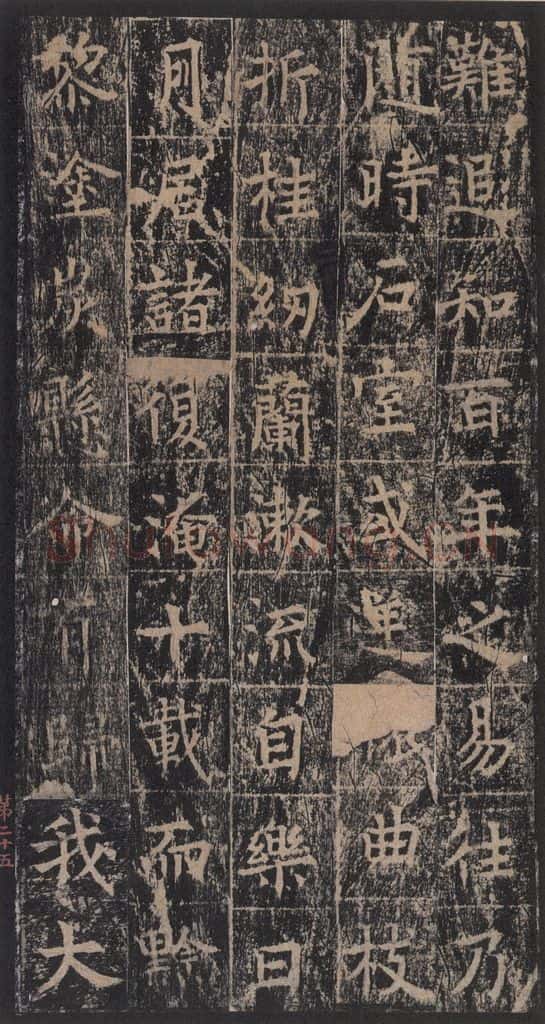 難退知百年之易往乃
随時石室或單曲枝
折桂紉蘭漱流自樂日
月居諸復淹十載而黔
黎塗炭縣命可歸我大
第二十五